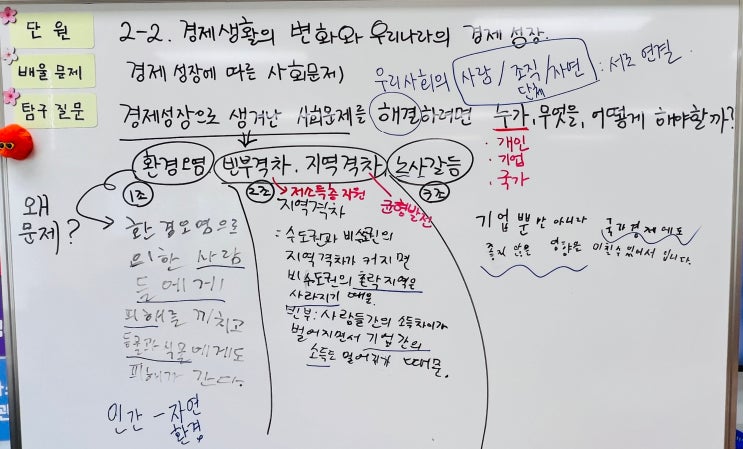 단 원
2-2. 경제생활의 변화와 우리나라의 경제 성장.
배울 문제
경제 성장에 따른 사회문제)
우리사회의 사람 / 조직 / 자연 : 서로 연결
단체
탐구 질문
경제성장으로 생겨난 사회문제를 해결하려면 누가, 무엇을, 어떻게 해야할까?
· 개인
· 기업
· 국가
환경오염 빈부격차 · 지역격차, 노사갈등
왜
문제?
1조
환경오염으로
의한 사람
들에게
피해를 끼치고
동물과 식물에게도
피해가 간다.
인간 - 자연
환경
2조
저소득층 지원
균형발전
지역격차
: 수도권과 비수도권의
지역격차가 커지면
비수도권의 촌락지역은
사라지기 때문.
빈부 : 사람들간의 소득차이가
벌어지면서 기업간의
소득도 멀어지기 때문.
3조
기업 뿐만 아니라 국가경제에도
좋지 않은 영향을 미칠수 있어서 입니다.